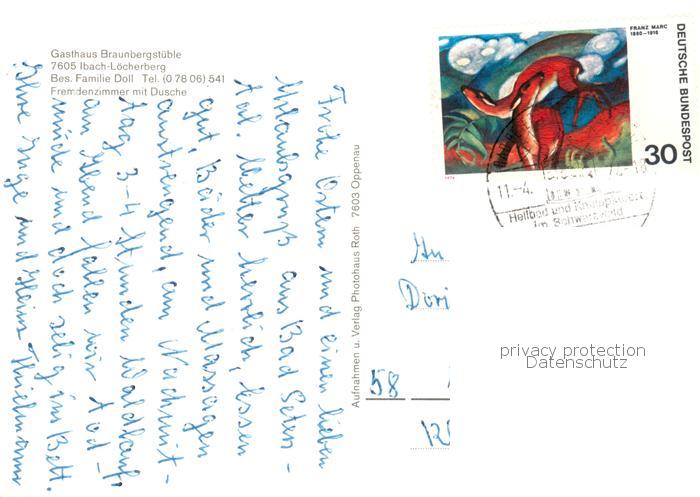 Gasthaus Braunbergstüble
7605 Ibach-Löcherberg
Bes. Familie Doll Tel. (0 78 06) 541
Fremdenzimmer mit Dusche
Frohe Ostern und einen lieben
Urlaubsgruß aus Bad Peters-
tal. Wetter herrlich, Essen
gut, Bäder und Massagen
anstrengend, am Nachmit-
tag 3-4 Stunden Waldlauf,
am Abend fallen wir tod-
müde und doch selig ins Bett.
Ihre Inge und Heinz Thielmann
Aufnahmen u. Verlag Photohaus Roth 7603 Oppenau
FRANZ MARC
1880-1916
DEUTSCHE BUNDESPOST
30
1974
11.-4.
Heilbad und Kneippkurort
im Schwarzwald
An
58
privacy protection
Datenschutz